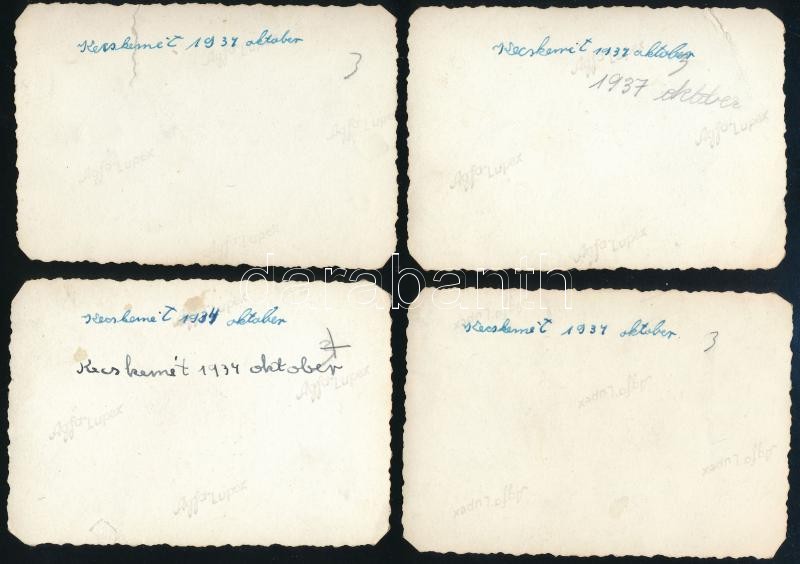 Kecskemét 1937 oktober
3
Agfa Lupex
Agfa Lupex
Agfa Lupex
Kecskemét 1937 oktober
3
1937 oktober
Agfa Lupex
Agfa Lupex
Agfa Lupex
darabanth
Kecskemét 1937 oktober
Kecskemét 1937 oktober
Agfa Lupex
Agfa Lupex
Agfa Lupex
Kecskemét 1937 oktober
3
Agfa Lupex
Agfa Lupex
Agfa Lupex